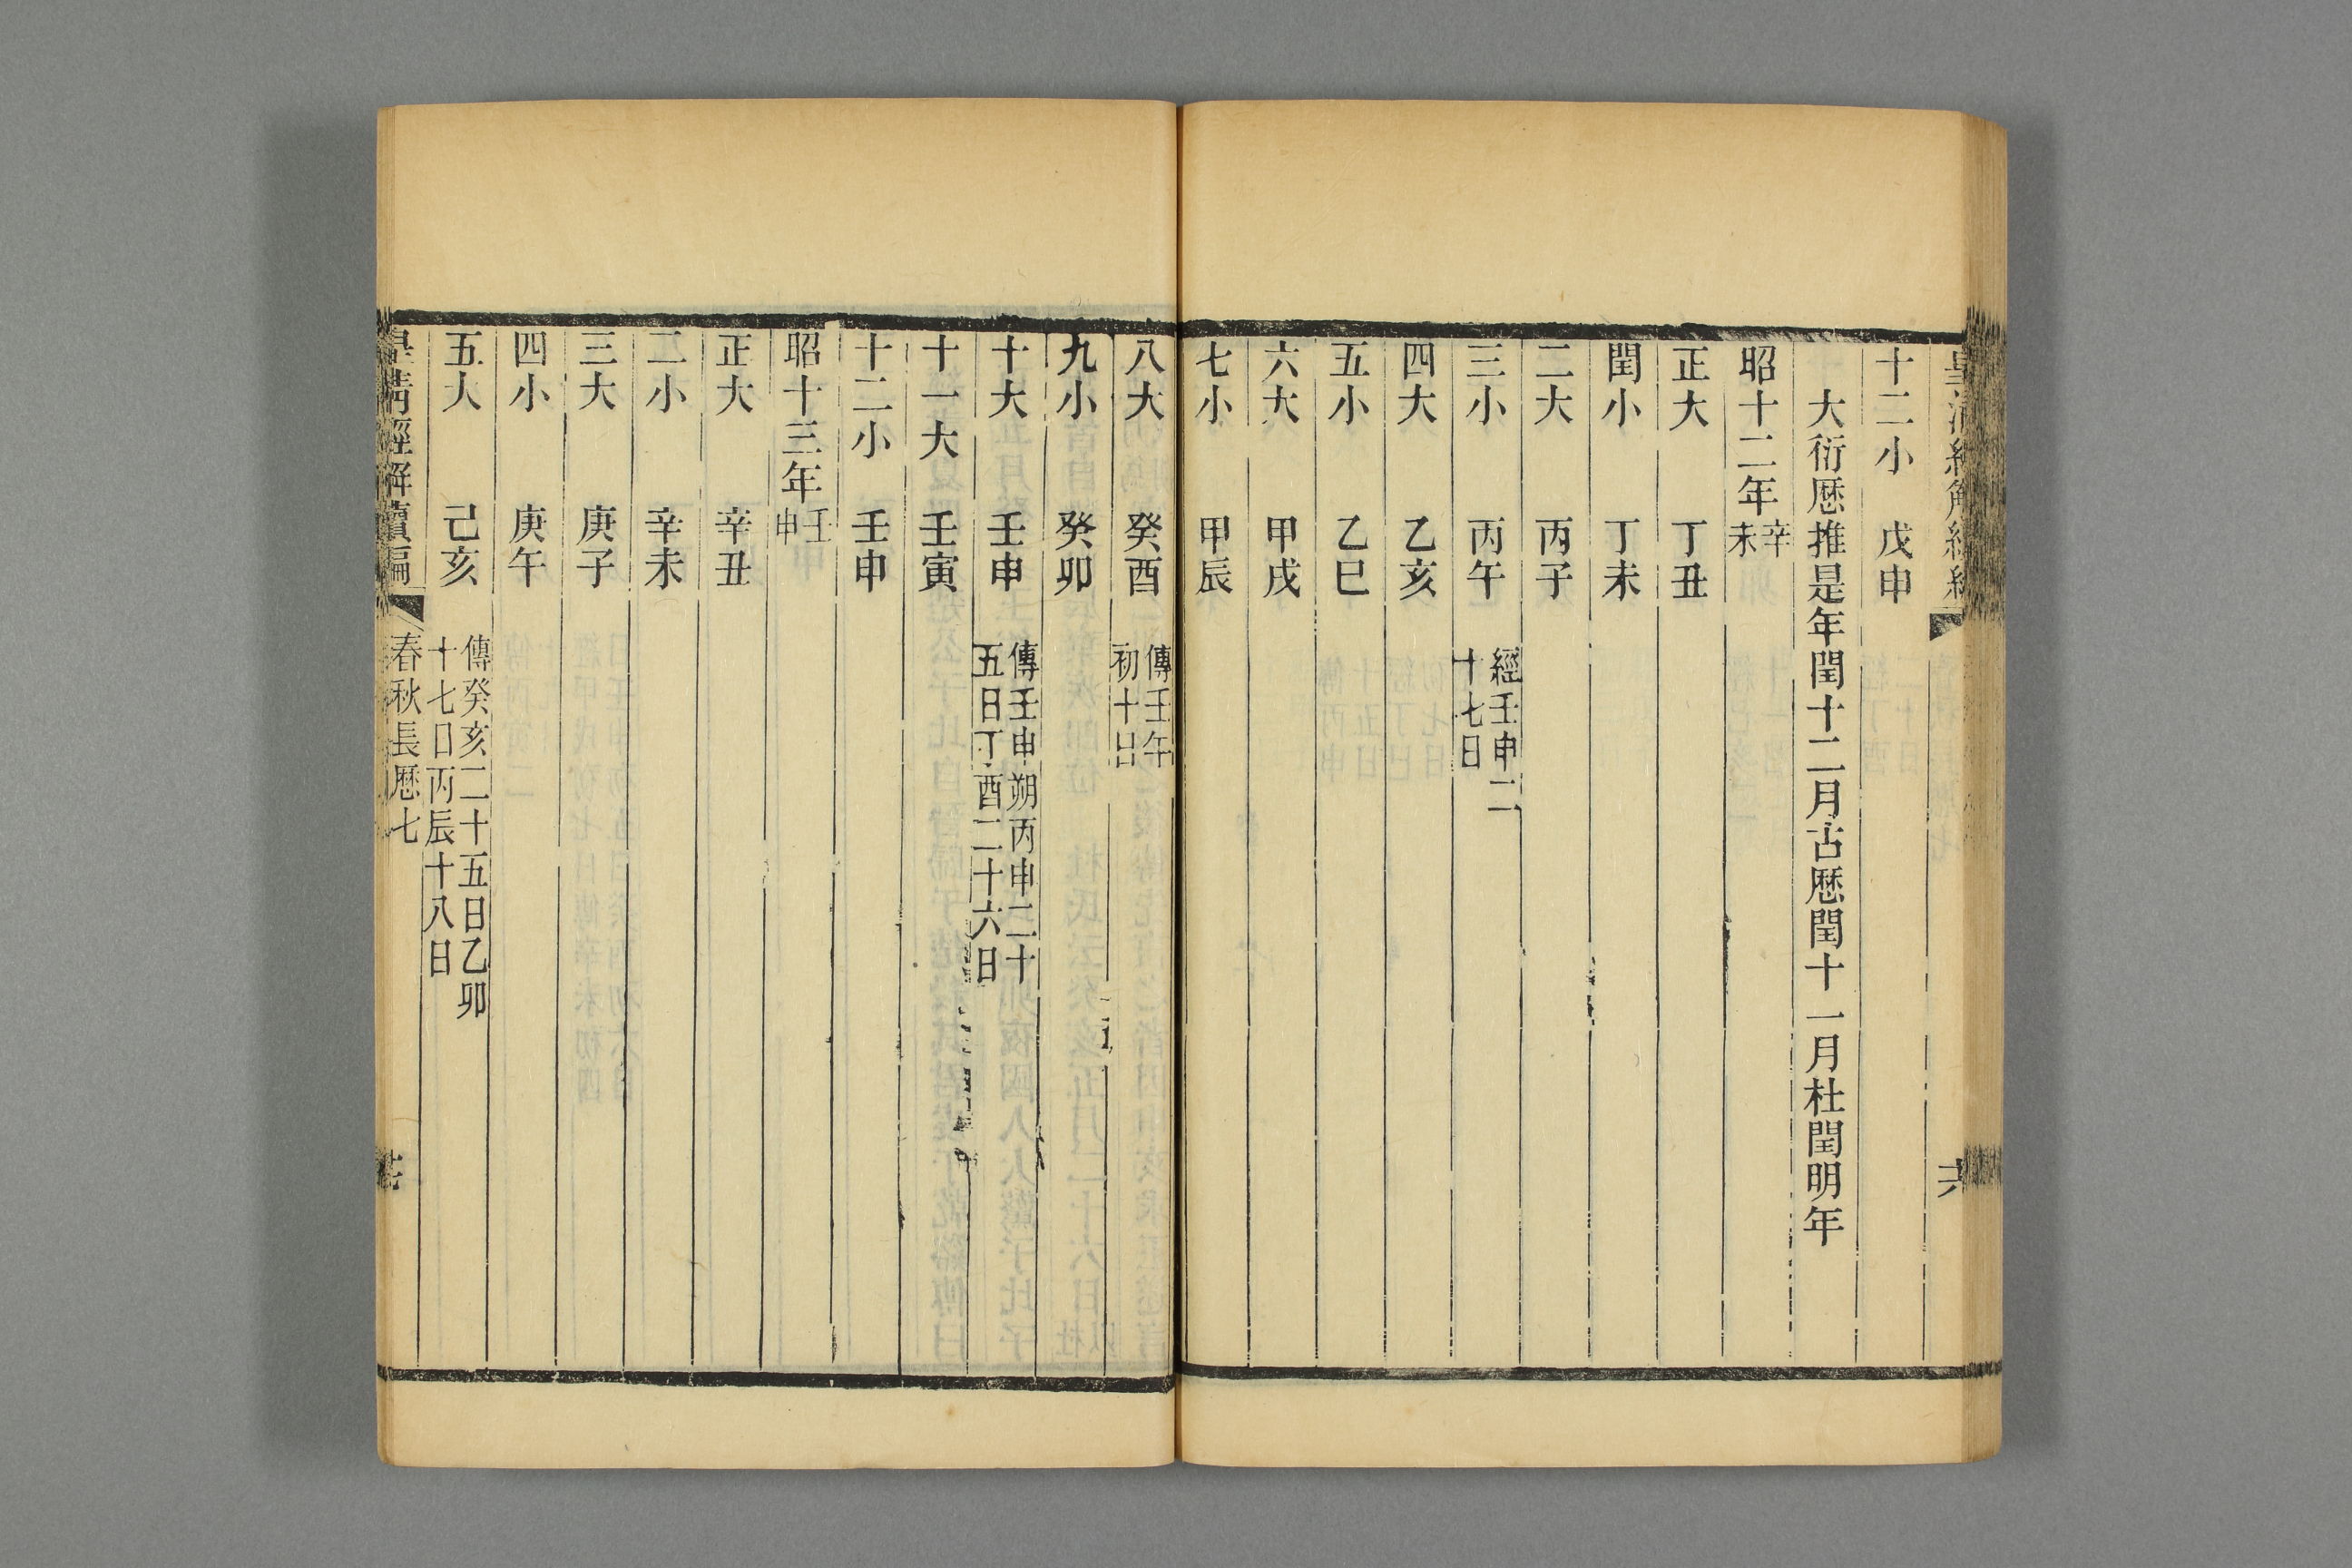 十二小 戊申
大衍厯推是年閏十二月古厯閏十一月杜閏明年
昭十二年辛未
正大 丁丑
閏小 丁未
二大 丙子
三小 丙午 經壬申二十七日
四大 乙亥
五小 乙巳
六大 甲戌
七小 甲辰
八大 癸酉 傳壬午初十日
九小 癸卯
十大 壬申 傳壬申朔丙申二十五日丁酉二十六日
十一大 壬寅
十二小 壬申
昭十三年壬申
正大 辛丑
二小 辛未
三大 庚子
四小 庚午
五大 己亥 傳癸亥二十五日乙卯十七日丙辰十八日
皇清經解續編 春秋長厯七